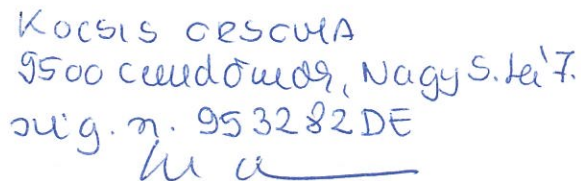 Kocsis Orsolya
9500 Celldömölk, Nagy S. tér 7.
szig. n. 953282DE